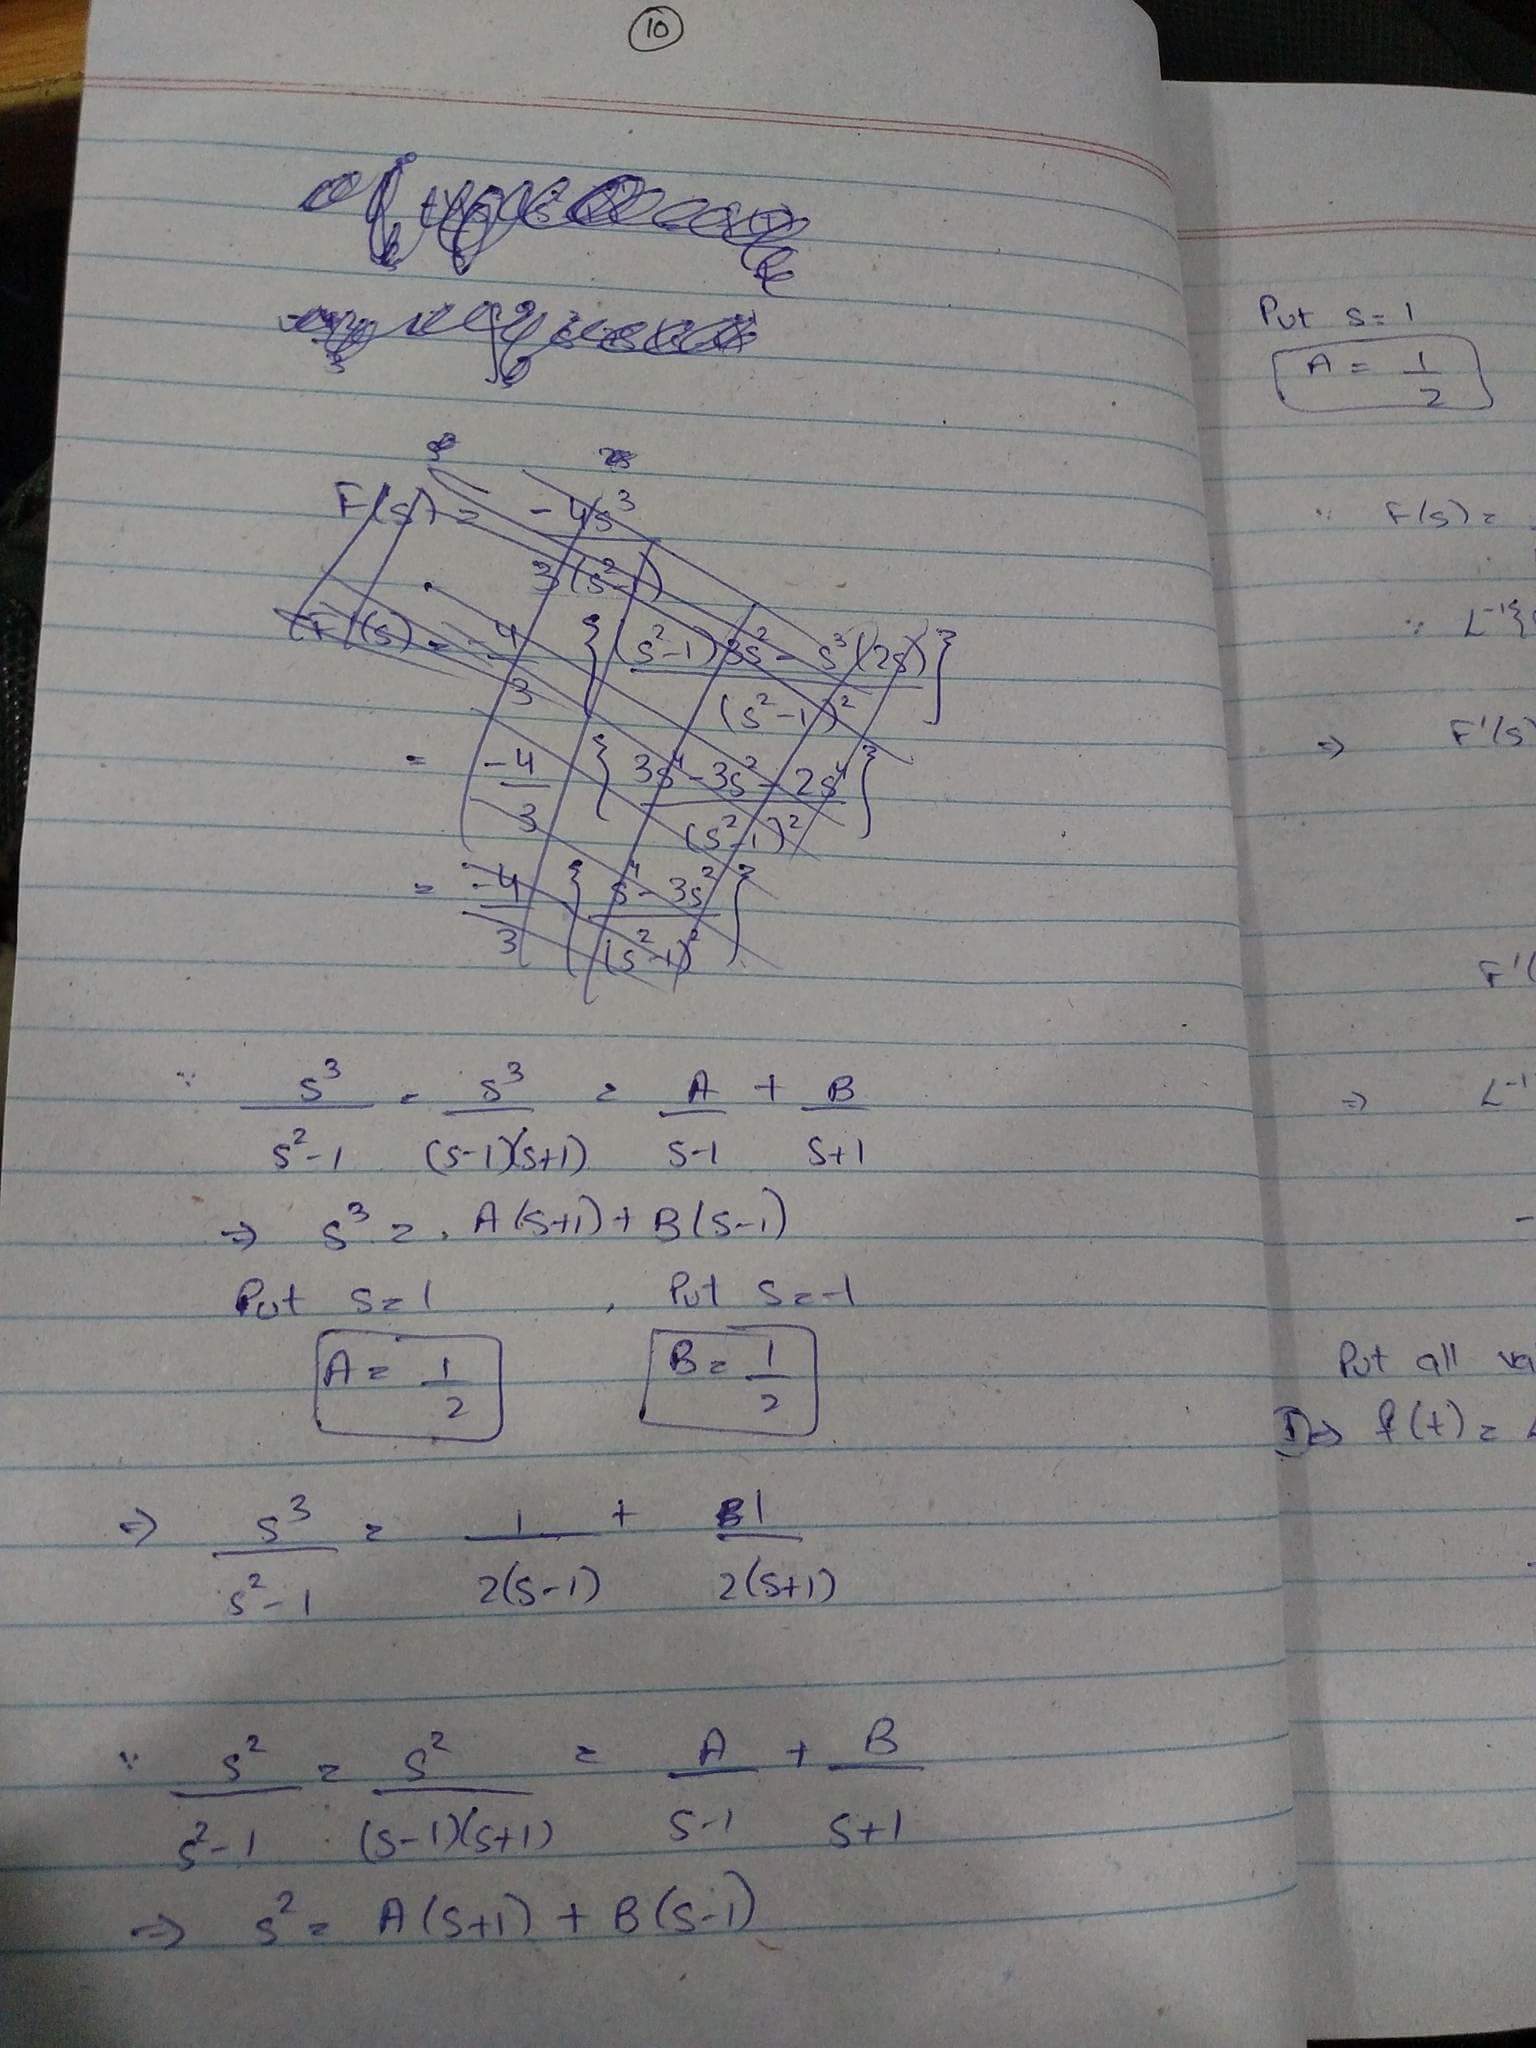 10
F(s) = -4s³
3(s²-1)
F'(s) = -4/3 { (s²-1)3s² - s³(2s) / (s²-1)² }
= -4/3 { 3s⁴-3s²-2s⁴ / (s²-1)² }
= -4/3 { s⁴-3s² / (s²-1)² }
∵ s³/(s²-1) = s³/((s-1)(s+1)) = A/(s-1) + B/(s+1)
⇒ s³ = A(s+1) + B(s-1)
Put s=1 , Put s=-1
A = 1/2 B = 1/2
⇒ s³/(s²-1) = 1/(2(s-1)) + 1/(2(s+1))
∵ s²/(s²-1) = s²/((s-1)(s+1)) = A/(s-1) + B/(s+1)
⇒ s² = A(s+1) + B(s-1)
Put s=1
A = 1/2
∵ F(s) =
∵ L⁻¹{
⇒ F'(s)
F'(
⇒ L⁻¹
Put all
⇒ f(t) =